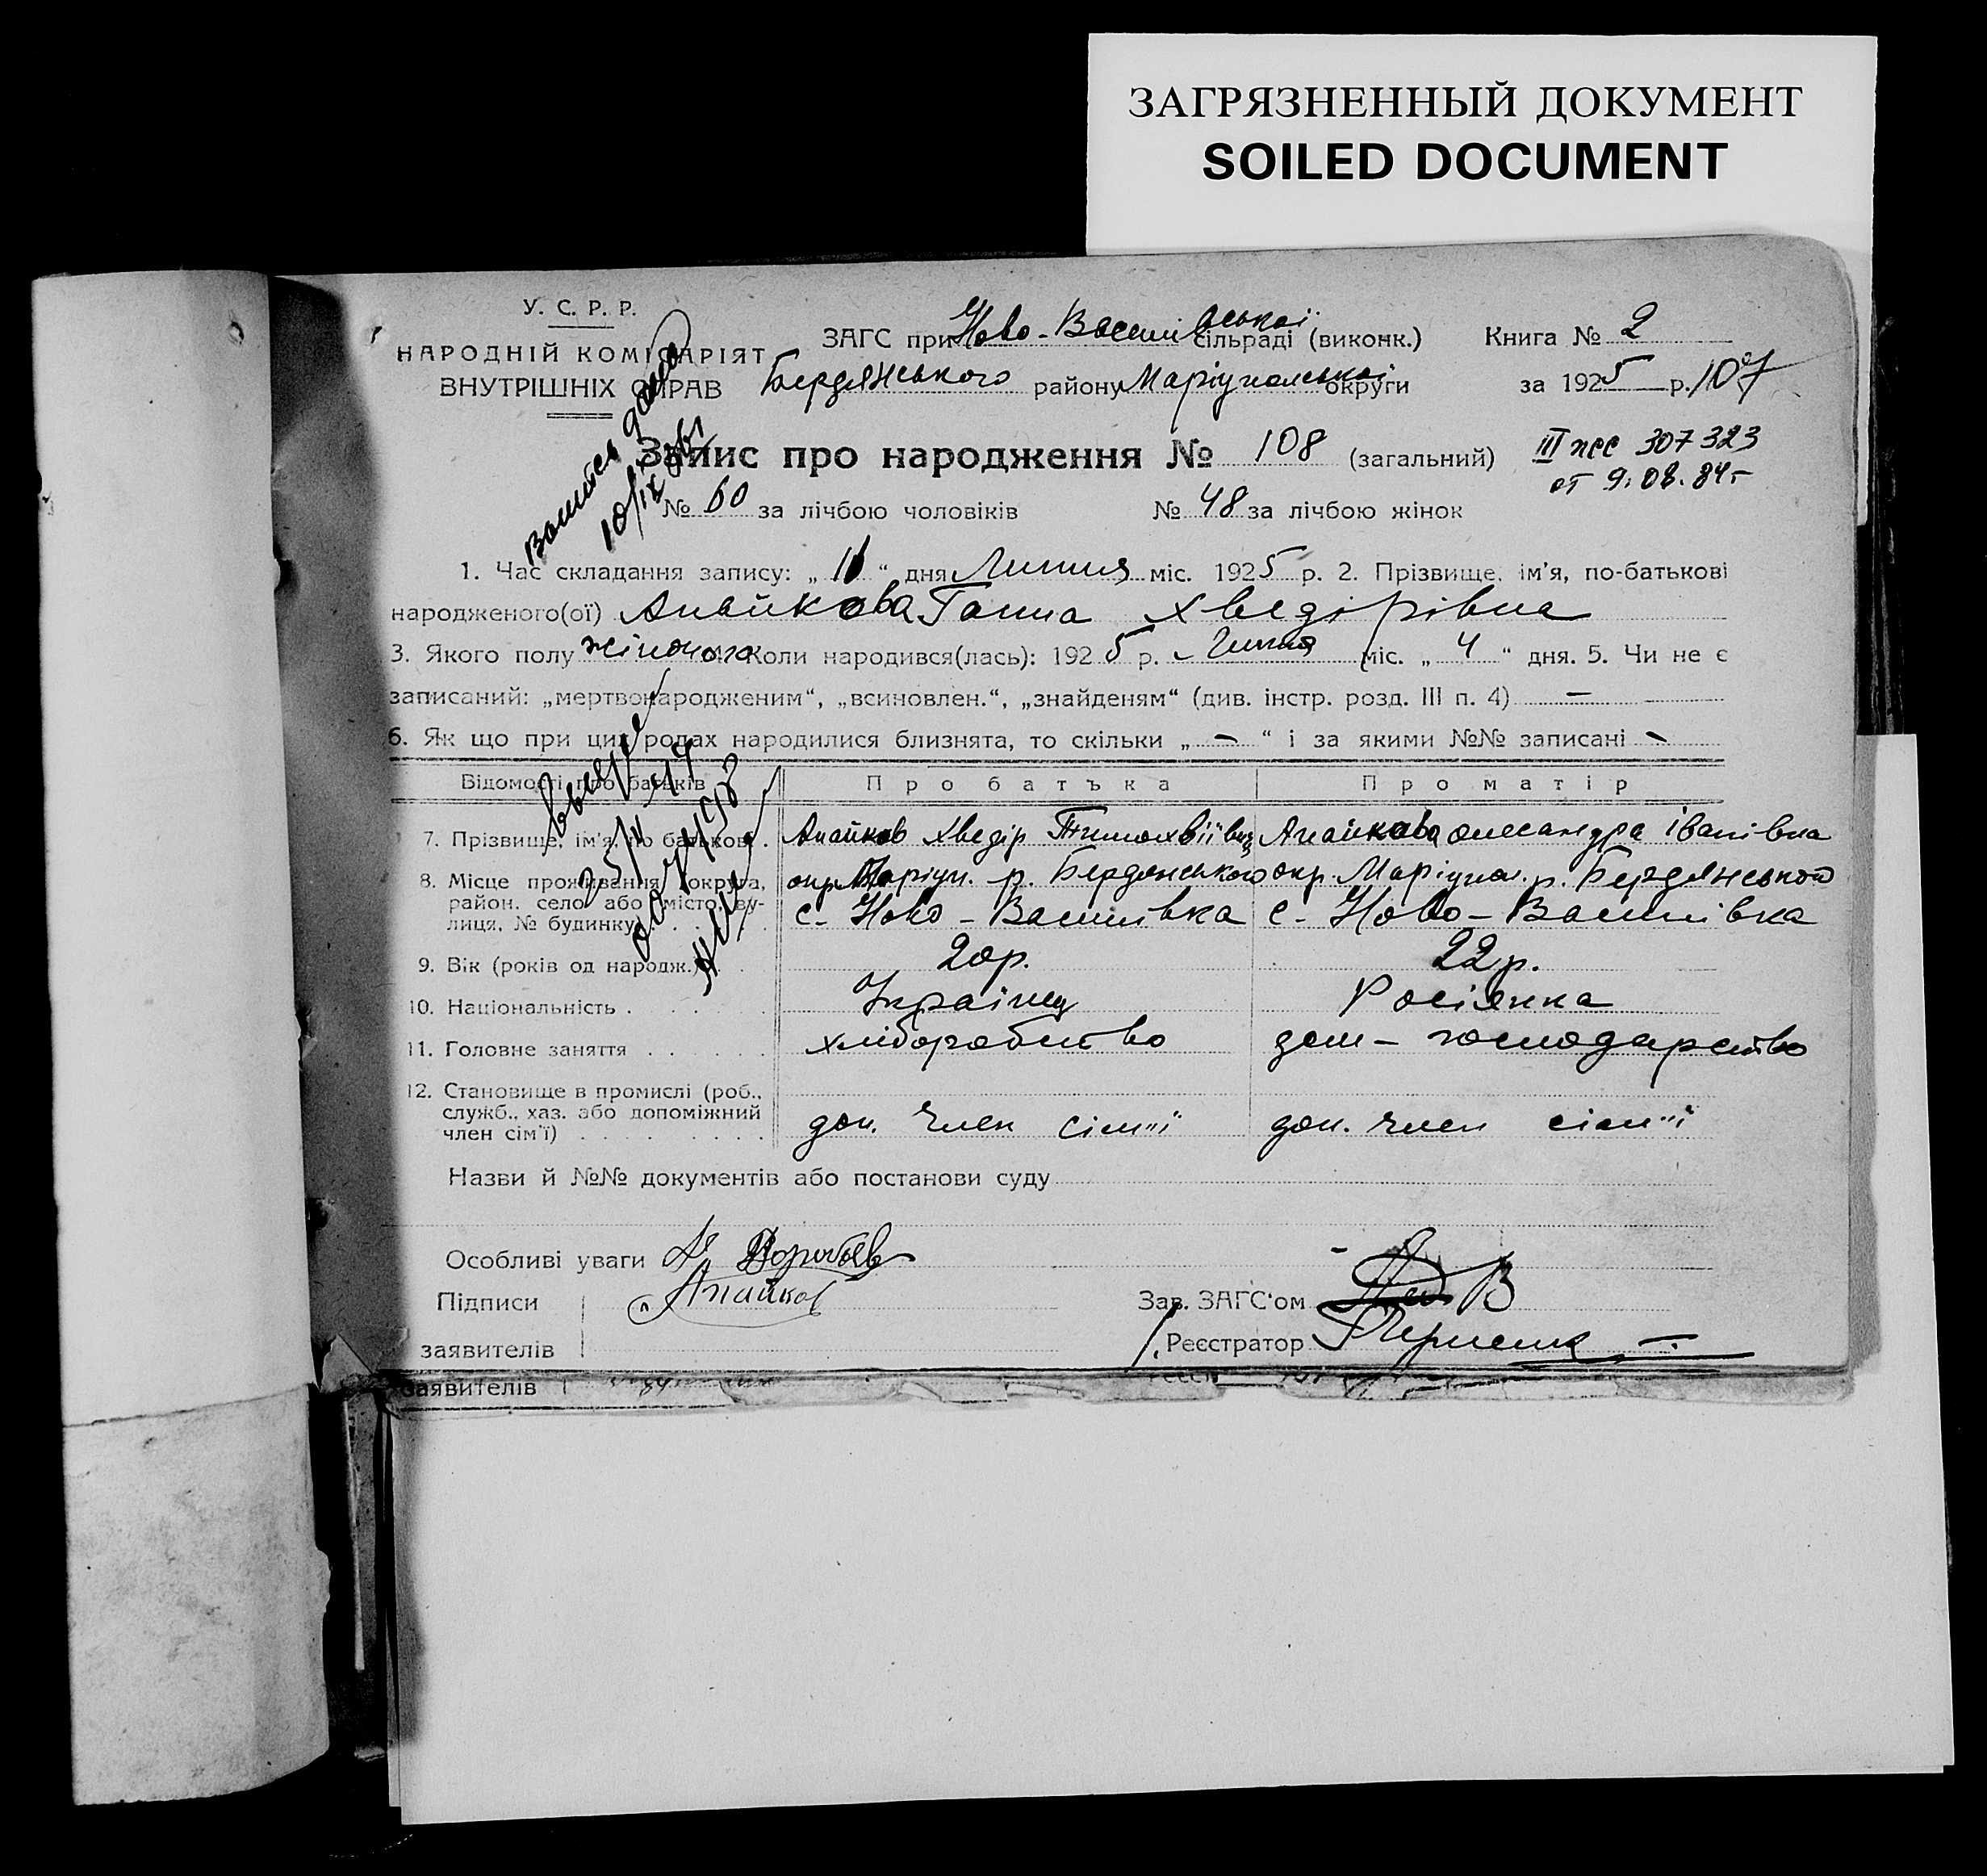 ЗАГРЯЗНЕННЫЙ ДОКУМЕНТ
SOILED DOCUMENT
У. С. Р. Р.
НАРОДНІЙ КОМІСАРІЯТ
ВНУТРІШНІХ СПРАВ
ЗАГС при Ново-Василівської сільраді (виконк.) Книга № 2
Бердянського району Маріупольської округи за 1925 р. 107
Запис про народження № 108 (загальний)
III ЖСС 307323
от 9.08.84г
№ 60 за лічбою чоловіків № 48 за лічбою жінок
10/IX
1. Час складання запису: „ 11 “ дня Липня міс. 1925 р. 2. Прізвище, ім'я, по-батькові
народженого(ої) Апайкова Ганна Хведірівна
3. Якого полу жіночого Коли народився(лась): 1925 р. Липня міс. „ 4 “ дня. 5. Чи не є
записаний: „мертвонародженим“, „всиновлен.“, „знайденям“ (див. інстр. розд. III п. 4) —
6. Як що при цих родах народилися близнята, то скільки „ — “ і за якими №№ записані —
Відомості про батьків Про батька Про матір
7. Прізвище, ім'я, по батькові . Апайков Хведір Тимохвіївич Апайкова Олександра Іванівна
8. Місце проживання (округа, район, село або місто, вулиця, № будинку) окр. Маріуп. р. Бердянського окр. Маріупол. р. Бердянського
с- Ново-Василівка с- Ново-Василівка
9. Вік (років од народж.) . 20р. 22р.
10. Національність . Українец Росіянка
11. Головне заняття . хліборобство дом- господарство
12. Становище в промислі (роб., служб., хаз. або допоміжний член сім'ї) доп. член сім"ї доп. член сім"ї
Назви й №№ документів або постанови суду
Особливі уваги
Підписи Апайков Зав. ЗАГС'ом
заявителів Реєстратор
заявителів